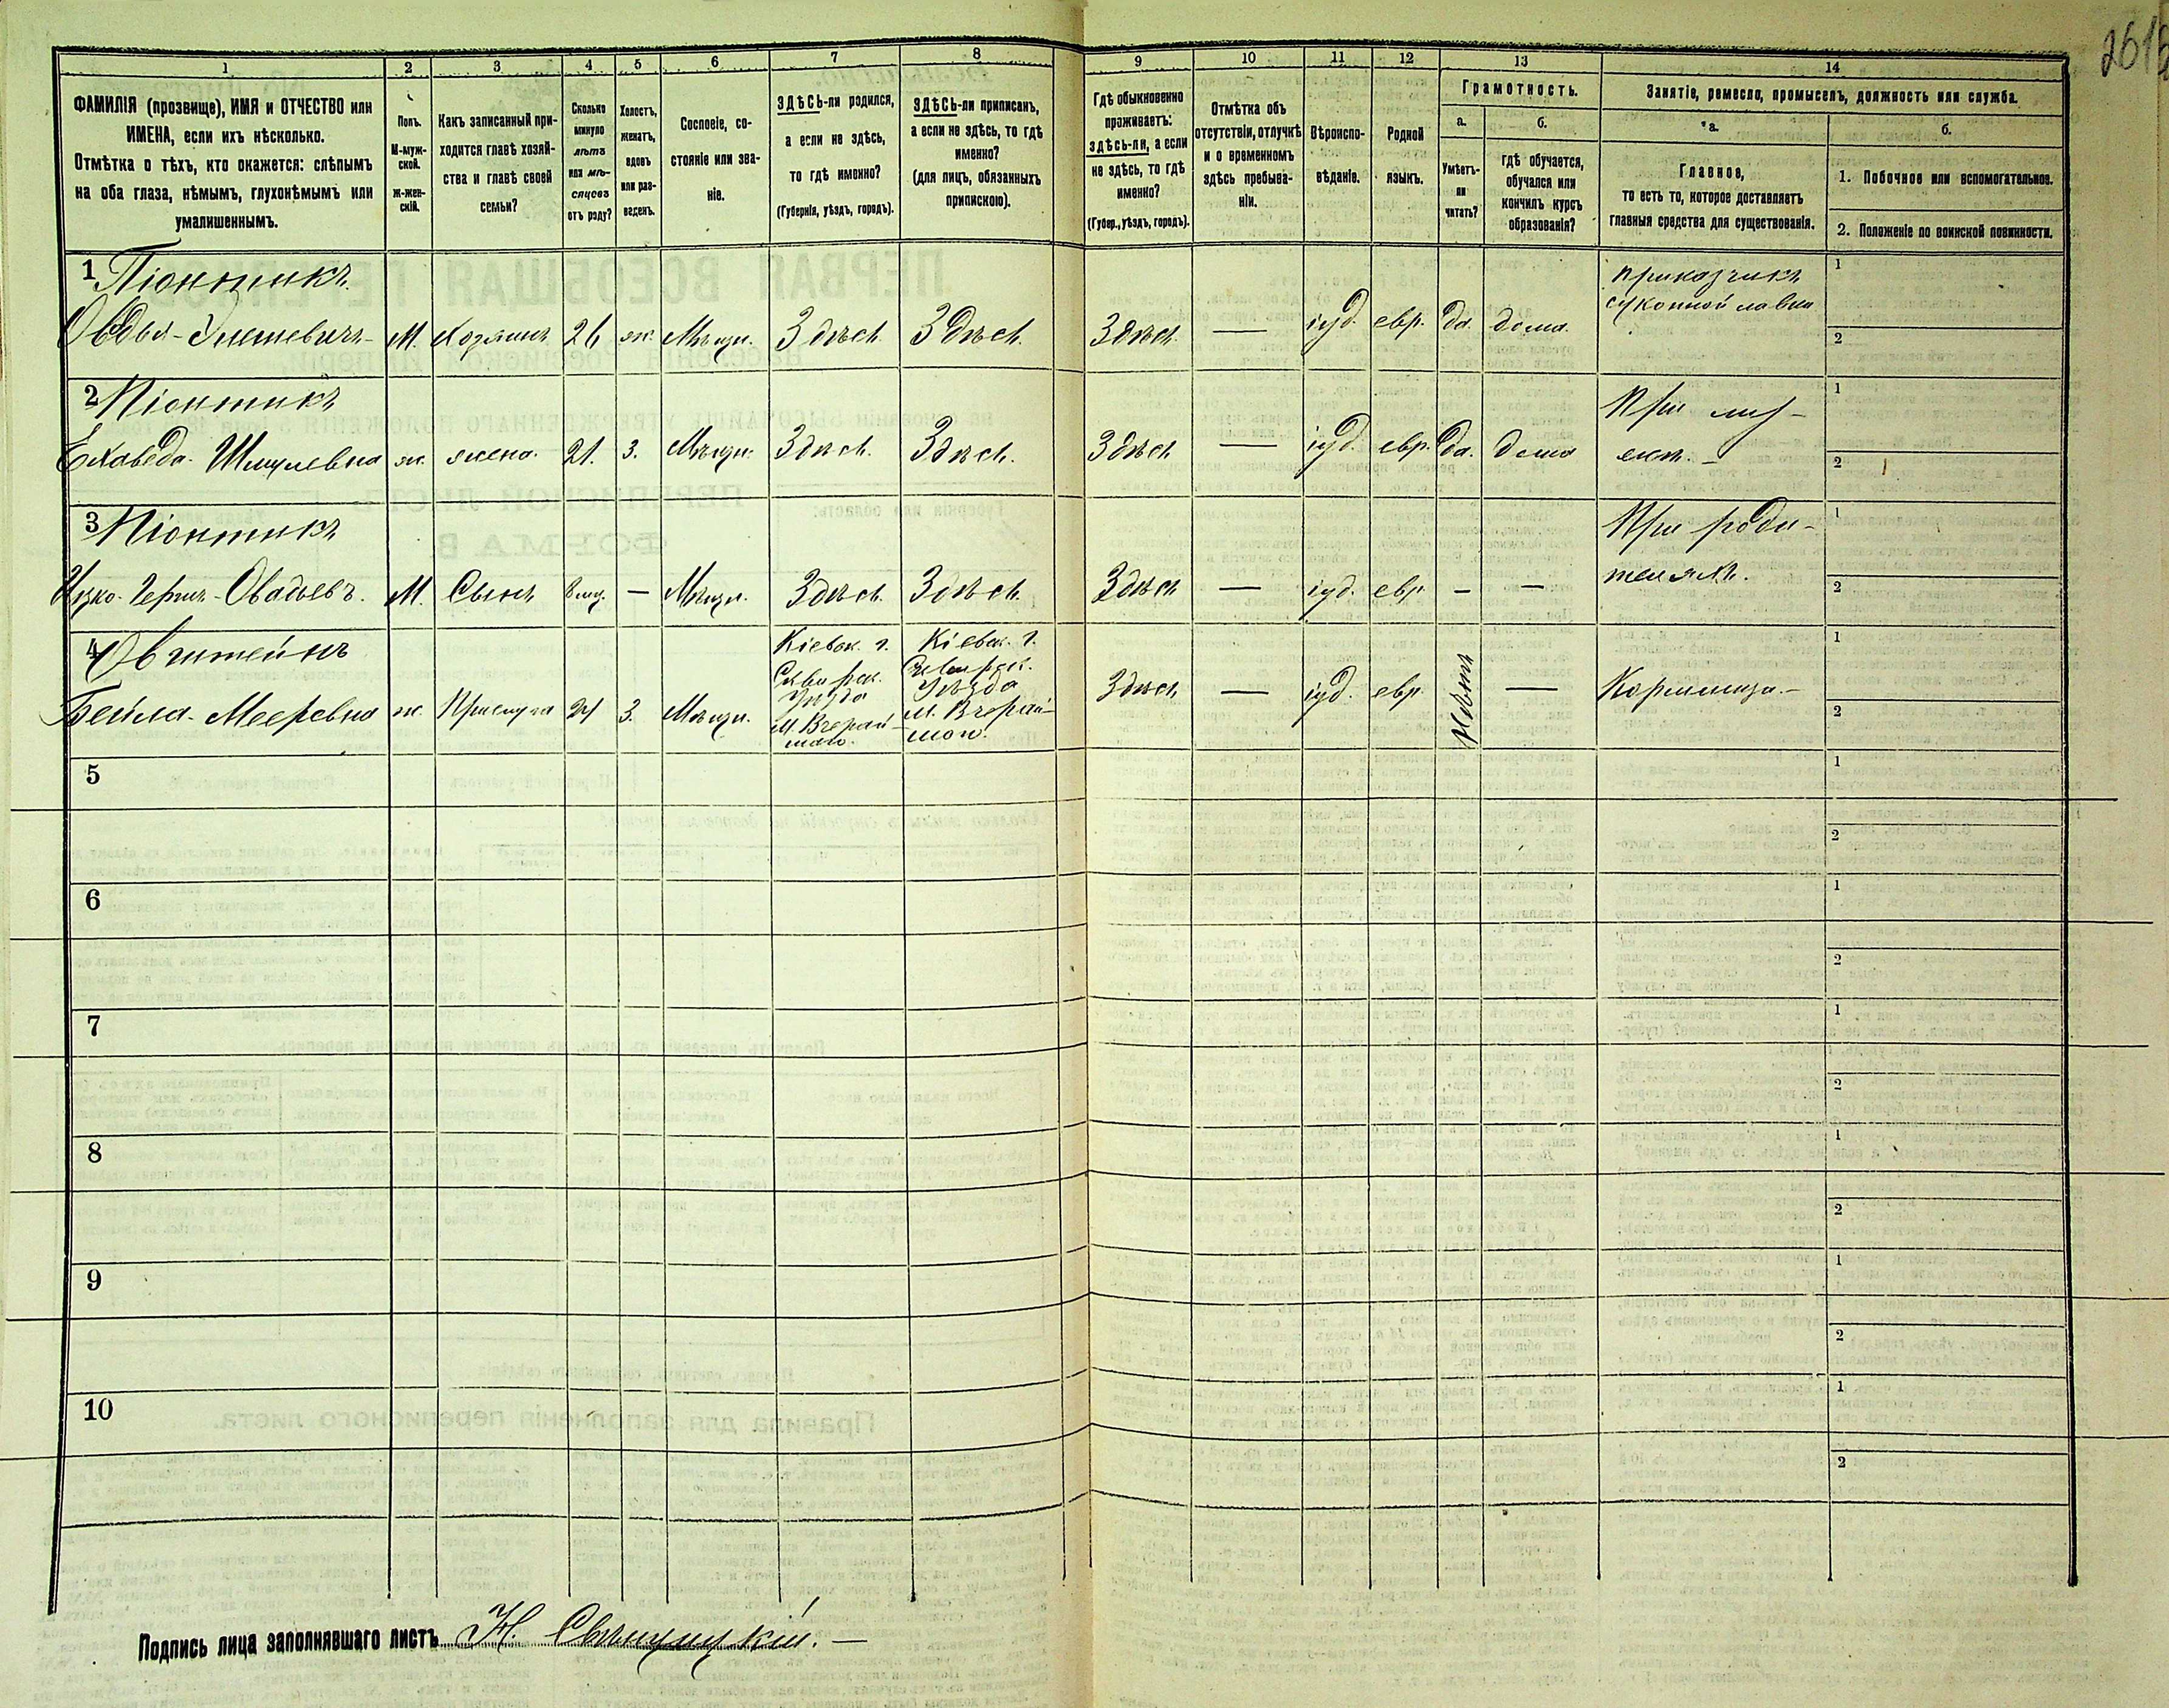 261
1 2 3 4 5 6 7 8 9 10 11 12 13 14
ФАМИЛІЯ (прозвище), ИМЯ и ОТЧЕСТВО или
ИМЕНА, если ихъ нѣсколько.
Отмѣтка о тѣхъ, кто окажется: слѣпымъ
на оба глаза, нѣмымъ, глухонѣмымъ или
умалишеннымъ.
Полъ.
М-муж-
ской.
ж-жен-
скій.
Какъ записанный при-
ходится главѣ хозяй-
ства и главѣ своей
семьи?
Сколько
минуло
лѣтъ
или мѣ-
сяцевъ
отъ роду?
Холостъ,
женатъ,
вдовъ
или раз-
веденъ.
Сословіе, со-
стояніе или зва-
ніе.
ЗДѢСЬ-ли родился,
а если не здѣсь,
то гдѣ именно?
(Губернія, уѣздъ, городъ).
ЗДѢСЬ-ли приписанъ,
а если не здѣсь, то гдѣ
именно?
(для лицъ, обязанныхъ
припискою).
Гдѣ обыкновенно
проживаетъ:
здѣсь-ли, а если
не здѣсь, то гдѣ
именно?
(Губер., уѣздъ, городъ).
Отмѣтка объ
отсутствіи, отлучкѣ
и о временномъ
здѣсь пребыва-
ніи.
Вѣроиспо-
вѣданіе.
Родной
языкъ.
Грамотность.
а.
Умѣетъ-
ли
читать?
б.
гдѣ обучается,
обучался или
кончилъ курсъ
образованія?
Занятіе, ремесло, промыселъ, должность или служба.
а.
Главное,
то есть то, которое доставляетъ
главныя средства для существованія.
б.
1. Побочное или вспомогательное.
2. Положеніе по воинской повинности.
1 Піонтикъ приказчикъ 1
суконной лавки
Овдья - М. Хозяинъ 26 ж. Мѣщ. Здѣсь Здѣсь Здѣсь — іуд. евр. да. дома. 2
2 Піонтикъ При му- 1
Еховеда Шмулевна ж. жена. 21. З. Мѣщ. Здѣсь Здѣсь Здѣсь — іуд. евр. да. дома жѣ. — 2
3 Піонтикъ При роди- 1
Ицко-Герш-Овадьевъ. М. Сынъ 8 мц. — Мѣщ. Здѣсь Здѣсь Здѣсь — іуд. евр. — — теляхъ. 2
4 Овштейнъ Кіевск. г. Кіевск. г. 1
Сквирск. Сквирск.
Уѣзда Уѣзда
Бейла-Мееровна ж. Прислуга 24 З. Мѣщ. м. Вчерай- м. Вчерай- Здѣсь — іуд. евр. Нѣтъ — Кормилица — 2
шаго. шаго.
5 1
2
6 1
2
7 1
2
8 1
2
9 1
2
10 1
2
Подпись лица заполнявшаго листъ Н. —